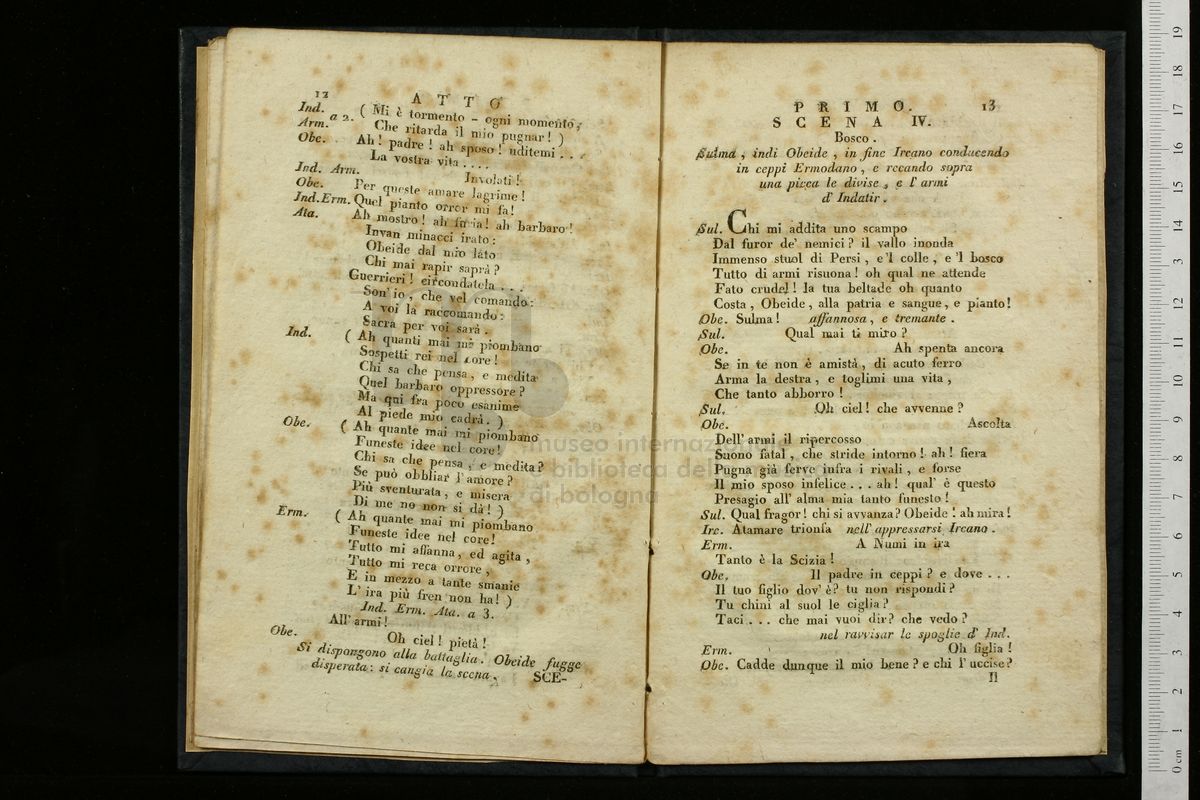 12 A T T O
Ind. ( Mi è tormento - ogni momento,
Arm. a 2. Che ritarda il mio pugnar! )
Obe. Ah! padre! ah sposo! uditemi . . .
La vostra vita . . . .
Ind. Arm. Involati!
Obe. Per queste amare lagrime!
Ind. Erm. Quel pianto orror mi fa!
Ata. Ah mostro! ah furia! ah barbaro!
Invan minacci irato:
Obeide dal mio lato
Chi mai rapir saprà?
Guerrieri! circondatela . . .
Son' io, che vel comando:
A voi la raccomando:
Sacra per voi sarà.
Ind. ( Ah quanti mai mi piombano
Sospetti rei nel core!
Chi sa che pensa, e medita
Quel barbaro oppressore?
Ma qui fra poco esanime
Al piede mio cadrà. )
Obe. ( Ah quante mai mi piombano
Funeste idee nel core!
Chi sa che pensa, e medita?
Se può obbliar l'amore?
Più sventurata, e misera
Di me no non si dà! )
Erm. ( Ah quante mai mi piombano
Funeste idee nel core!
Tutto mi affanna, ed agita,
Tutto mi reca orrore,
E in mezzo a tante smanie
L' ira più fren non ha! )
Ind. Erm. Ata. a 3.
All' armi!
Obe. Oh ciel! pietà!
Si dispongono alla battaglia. Obeide fugge
disperata: si cangia la scena.
SCE-
P R I M O. 13
S C E N A IV.
Bosco.
Sulma, indi Obeide, in fine Ircano conducendo
in ceppi Ermodano, e recando sopra
una picca le divise, e l' armi
d' Indatir.
Sul. Chi mi addita uno scampo
Dal furor de' nemici? il vallo inonda
Immenso stuol di Persi, e'l colle, e 'l bosco
Tutto di armi risuona! oh qual ne attende
Fato crudel! la tua beltade oh quanto
Costa, Obeide, alla patria e sangue, e pianto!
Obe. Sulma! affannosa, e tremante.
Sul. Qual mai ti miro?
Obe. Ah spenta ancora
Se in te non è amistà, di acuto ferro
Arma la destra, e toglimi una vita,
Che tanto abborro!
Sul. Oh ciel! che avvenne?
Obe. Ascolta
Dell' armi il ripercosso
Suono fatal, che stride intorno! ah! fiera
Pugna già ferve infra i rivali, e forse
Il mio sposo infelice . . . ah! qual' è questo
Presagio all' alma mia tanto funesto!
Sul. Qual fragor! chi si avvanza? Obeide! ah mira!
Irc. Atamare trionfa nell' appressarsi Ircano.
Erm. A Numi in ira
Tanto è la Scizia!
Obe. Il padre in ceppi? e dove . . .
Il tuo figlio dov' è? tu non rispondi?
Tu chini al suol le ciglia?
Taci . . . che mai vuoi dir? che vedo?
nel ravvisar le spoglie d' Ind.
Erm. Oh figlia!
Obe. Cadde dunque il mio bene? e chi l' uccise?
Il
museo internazionale
biblioteca della
di bologna